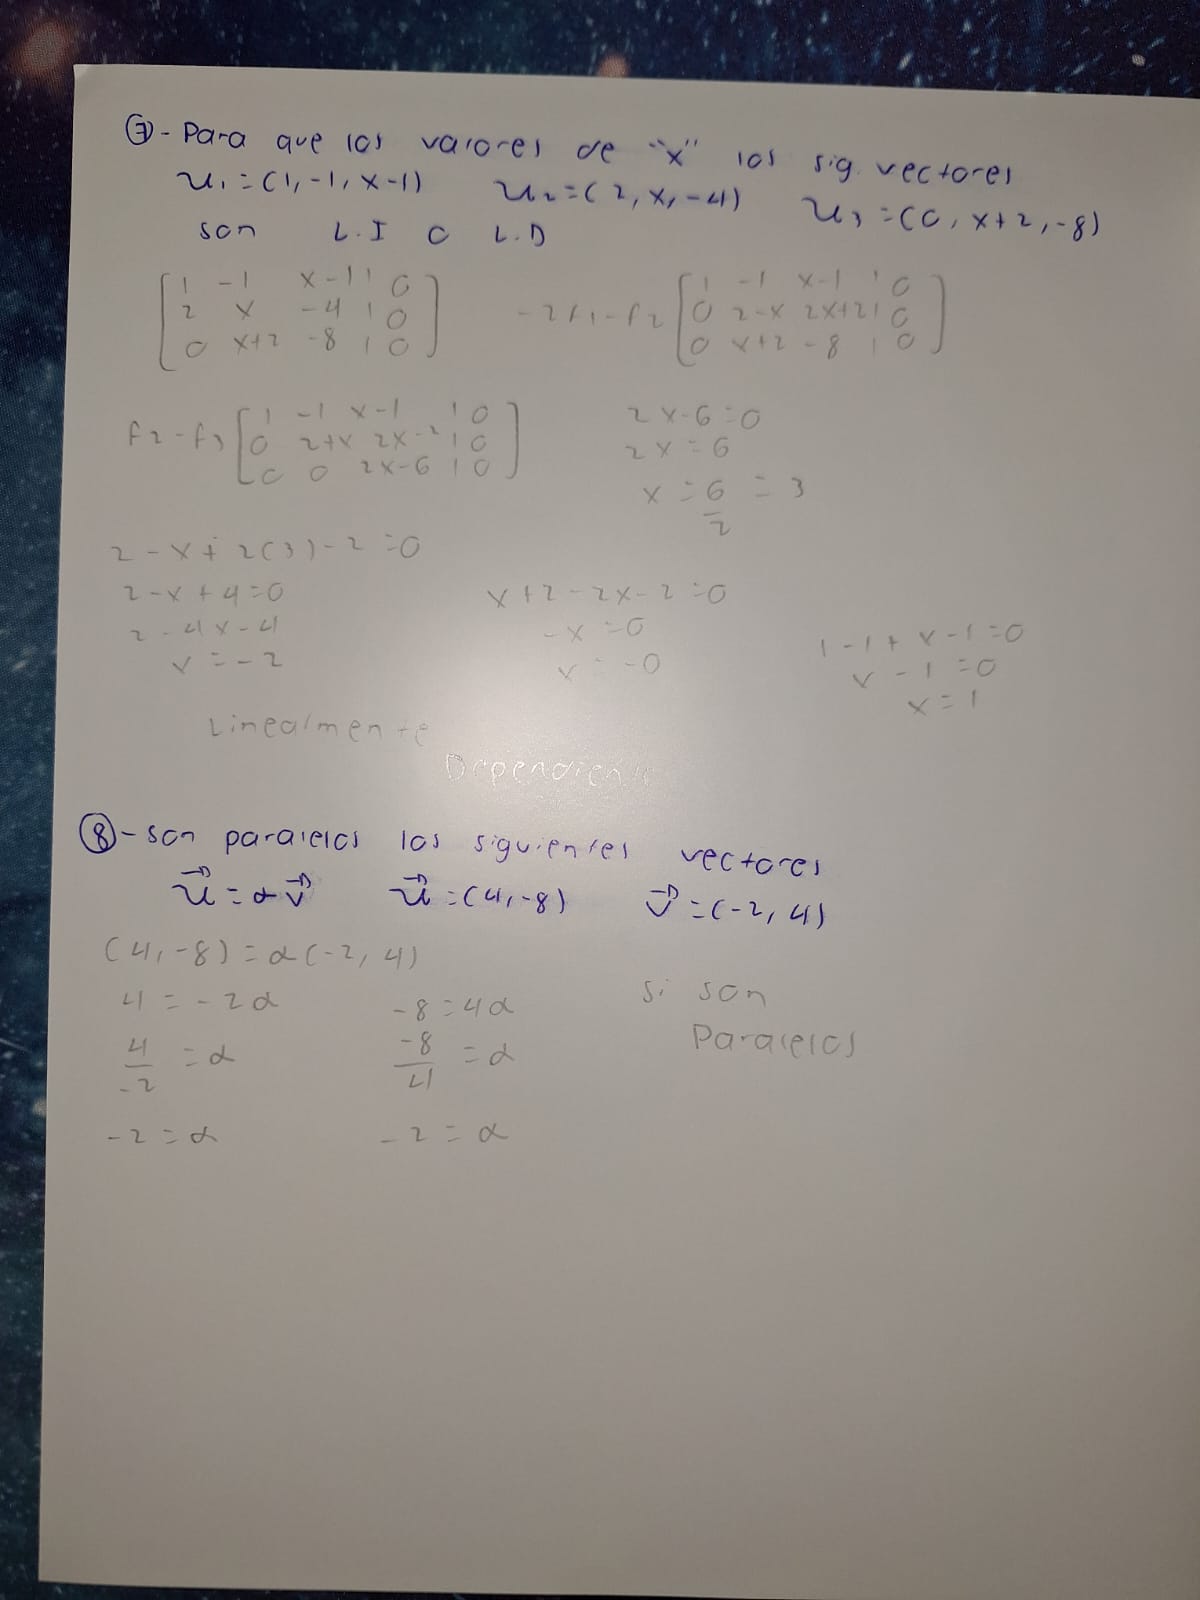 ⑦- Para que los valores de "x" los sig. vectores
u₁=(1,-1,x-1) u₂=(2,x,-4) u₃=(0,x+2,-8)
son L.I o L.D
1 -1 x-1 | 0
2 x -4 | 0
0 x+2 -8 | 0
-2f1-f2
1 -1 x-1 | 0
0 2-x 2x+2 | 0
0 x+2 -8 | 0
f2-f3
1 -1 x-1 | 0
0 2+x 2x-2 | 0
0 0 2x-6 | 0
2x-6=0
2x=6
x=6/2=3
2-x+2(3)-2=0
2-x+4=0
2-4x-4
x=-2
x+2-2x-2=0
-x=0
x=-0
1-1+x-1=0
x-1=0
x=1
Linealmente
⑧-son paralelos los siguientes vectores
u⃗=αv⃗ u⃗=(4,-8) v⃗=(-2,4)
(4,-8)=α(-2,4)
4=-2α
4/-2=α
-2=α
-8=4α
-8/4=α
-2=α
si son
Paralelos